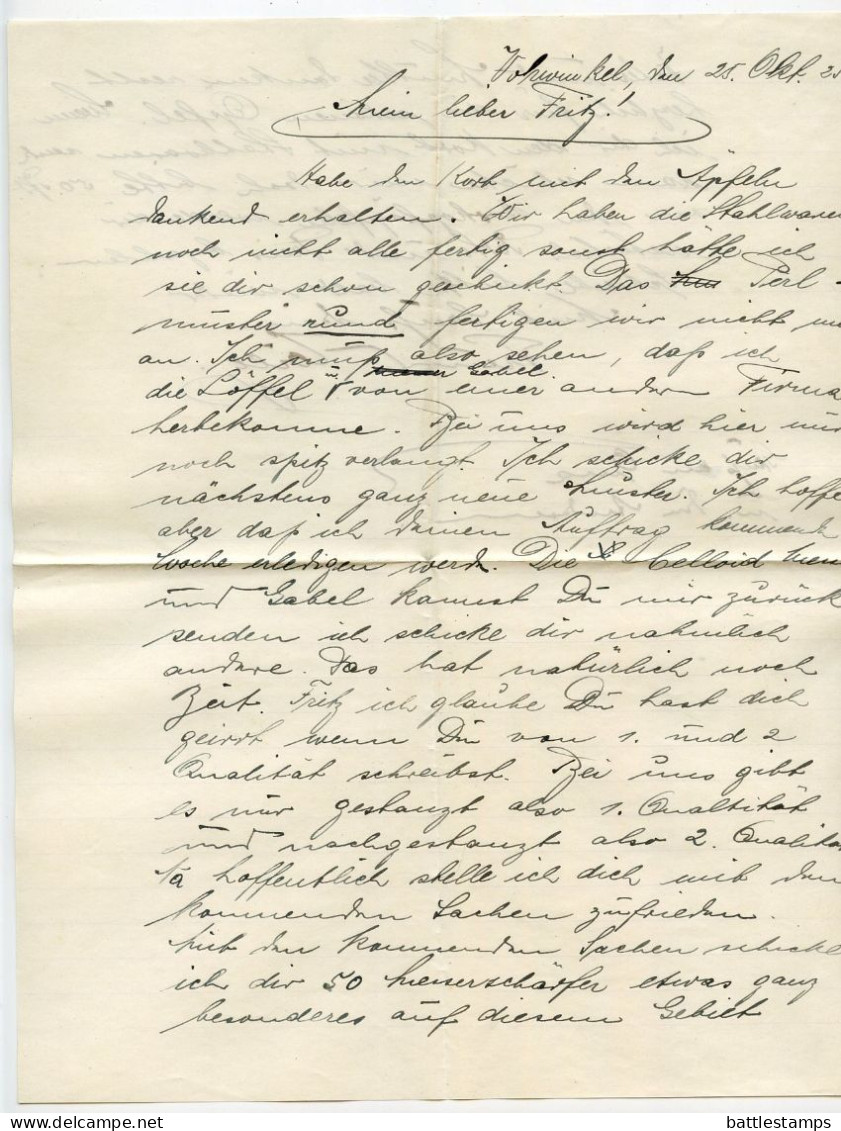 Vohwinkel, den 25. Okt. 25
Mein lieber Fritz!
Habe den Korb mit den Äpfeln
dankend erhalten. Wir haben die Stahlwaren
noch nicht alle fertig sonst hätte ich
sie dir schon geschickt. Das Perl-
muster rund fertigen wir nicht
an. Ich muß also sehen, daß ich
die Löffel u. Gabel von einer andern Firma
herbekomme. Bei uns wird hier nur
noch spitz verlangt. Ich schicke dir
nächstens ganz neue Muster. Ich hoffe
aber daß ich deinen Auftrag kommende
Woche erledigen werde. Die Celloid
und Gabel kannst Du mir zurück
senden ich schicke dir nähmlich
andere. Das hat natürlich noch
Zeit. Fritz ich glaube Du hast dich
geirrt wenn Du von 1. und 2
Qualität schreibst. Bei uns gibt
es nur gestanzt also 1. Qualtität
und nachgestanzt also 2. Qualität
Na hoffentlich stelle ich dich mit den
kommenden Sachen zufrieden.
Mit den kommenden Sachen schicke
ich dir 50 Messerschärfer etwas ganz
besonderes auf diesem Gebiet
battlestamps